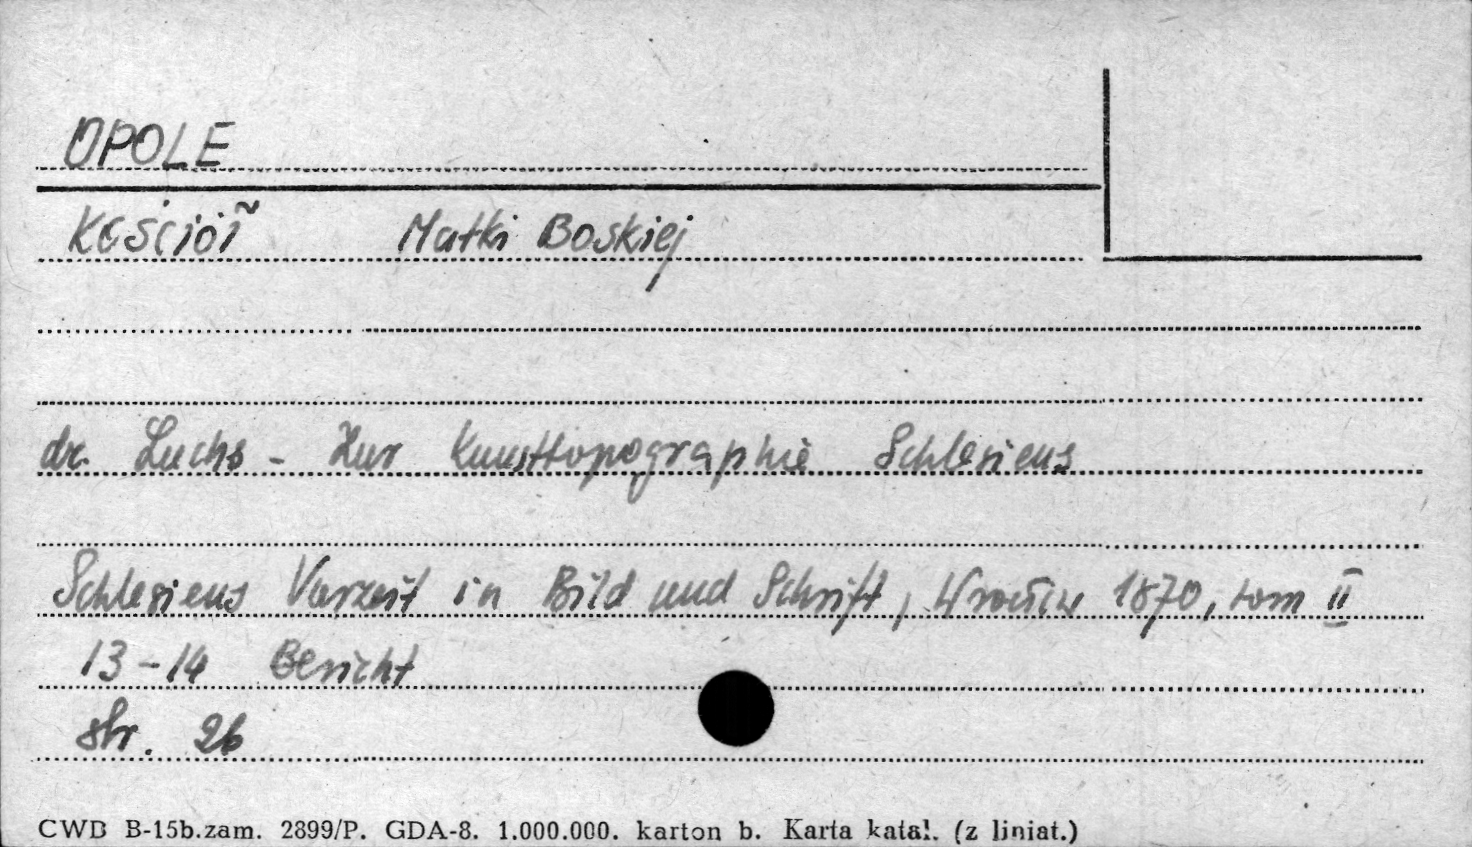 OPOLE
Kościół Matki Boskiej
dr. Luchs - Zur Kunsttopographie Schlesiens
Schlesiens Vorzeit in Bild und Schrift, Wrocław 1870, tom II
13-14 Bericht
str. 26
CWD B-15b.zam. 2899/P. GDA-8. 1.000.000. karton b. Karta katal. (z liniat.)